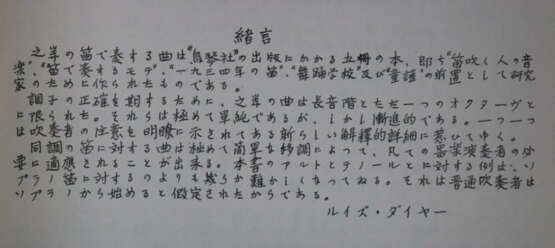 緒言
之等の笛で奏する曲は"鳥琴社"の出版にかかる五冊の本、即ち"笛吹く人の音
楽"、"笛で奏するモデ"、"一九三四年の笛"、"舞踊学校"及び"童謡"の前置として研究
家のために作られたものである。
調子の正確を期するために、之等の曲は長音階とただ一つのオクターヴと
に限られた。それらは極めて単純であるが、しかし漸進的である。一つ一つ
は吹奏者の注意を明瞭に示されてある新らしい解釋的詳細に惹いてゆく。
同調の笛に対する曲は極めて簡単な移調によって、凡ての器楽演奏者の必
要に適應されることが出来る。本書のアルトとテノールとに対する例は、ソ
プラノ笛に対するのよりも幾らか難かしくなってゐる。それは普通吹奏者は
ソプラノから始めると假定されたからである。
ルイズ・ダイヤー